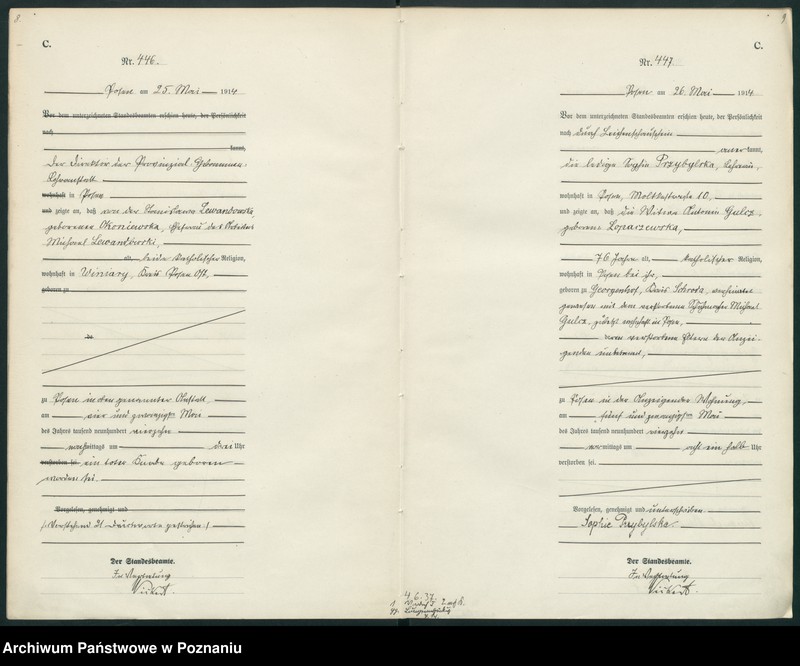 8.
C.
Nr. 446.
Posen am 25. Mai 1914
Vor dem unterzeichneten Standesbeamten erschien heute, der Persönlichkeit
nach
kannt,
Der Direktor der Provinzial-Hebammen-
Lehranstalt
wohnhaft in Posen
und zeigte an, daß von der Stanislawa Lewandowska,
geborenen Okoniewska, Ehefrau des Arbeiters
Michael Lewandowski,
alt, beide katholischer Religion,
wohnhaft in Winiary, Kreis Posen Ost,
geboren zu
zu Posen in der genannten Anstalt
am vier und zwanzigsten Mai
des Jahres tausend neunhundert vierzehn
nachmittags um drei Uhr
verstorben sei ein toter Knabe geboren
worden sei.
Vorgelesen, genehmigt und
(Vorstehend 21 Druckworte gestrichen.)
Der Standesbeamte.
In Vertretung
9
C.
Nr. 447.
Posen am 26. Mai 1914
Vor dem unterzeichneten Standesbeamten erschien heute, der Persönlichkeit
nach durch Leichenschauschein
anerkannt,
die ledige Sophie Przybylska,
wohnhaft in Posen, Moltkestraße 10,
und zeigte an, daß die Witwe Antonie Gulcz,
geborene Loparzewska,
76 Jahre alt, katholischer Religion,
wohnhaft in Posen bei ihr,
geboren zu Georgenhof, Kreis Schroda, verheiratet
gewesen mit dem verstorbenen Schuhmacher Michael
Gulcz, zuletzt wohnhaft in Posen,
deren verstorbene Eltern der Anzei-
genden unbekannt,
zu Posen in der Anzeigenden Wohnung,
am fünf und zwanzigsten Mai
des Jahres tausend neunhundert vierzehn
vormittags um acht ein halb Uhr
verstorben sei.
Vorgelesen, genehmigt und unterschrieben
Sophie Przybylska.
Der Standesbeamte.
In Vertretung
4.6.37.
Archiwum Państwowe w Poznaniu